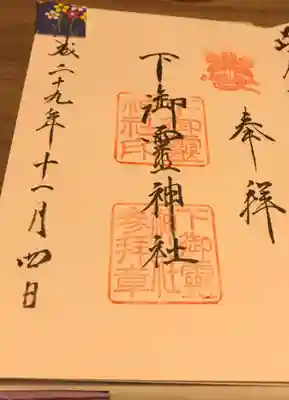 奉拝
下御靈神社
下御靈
神社印
下御靈
神社
参拝章
成二十九年十一月四日